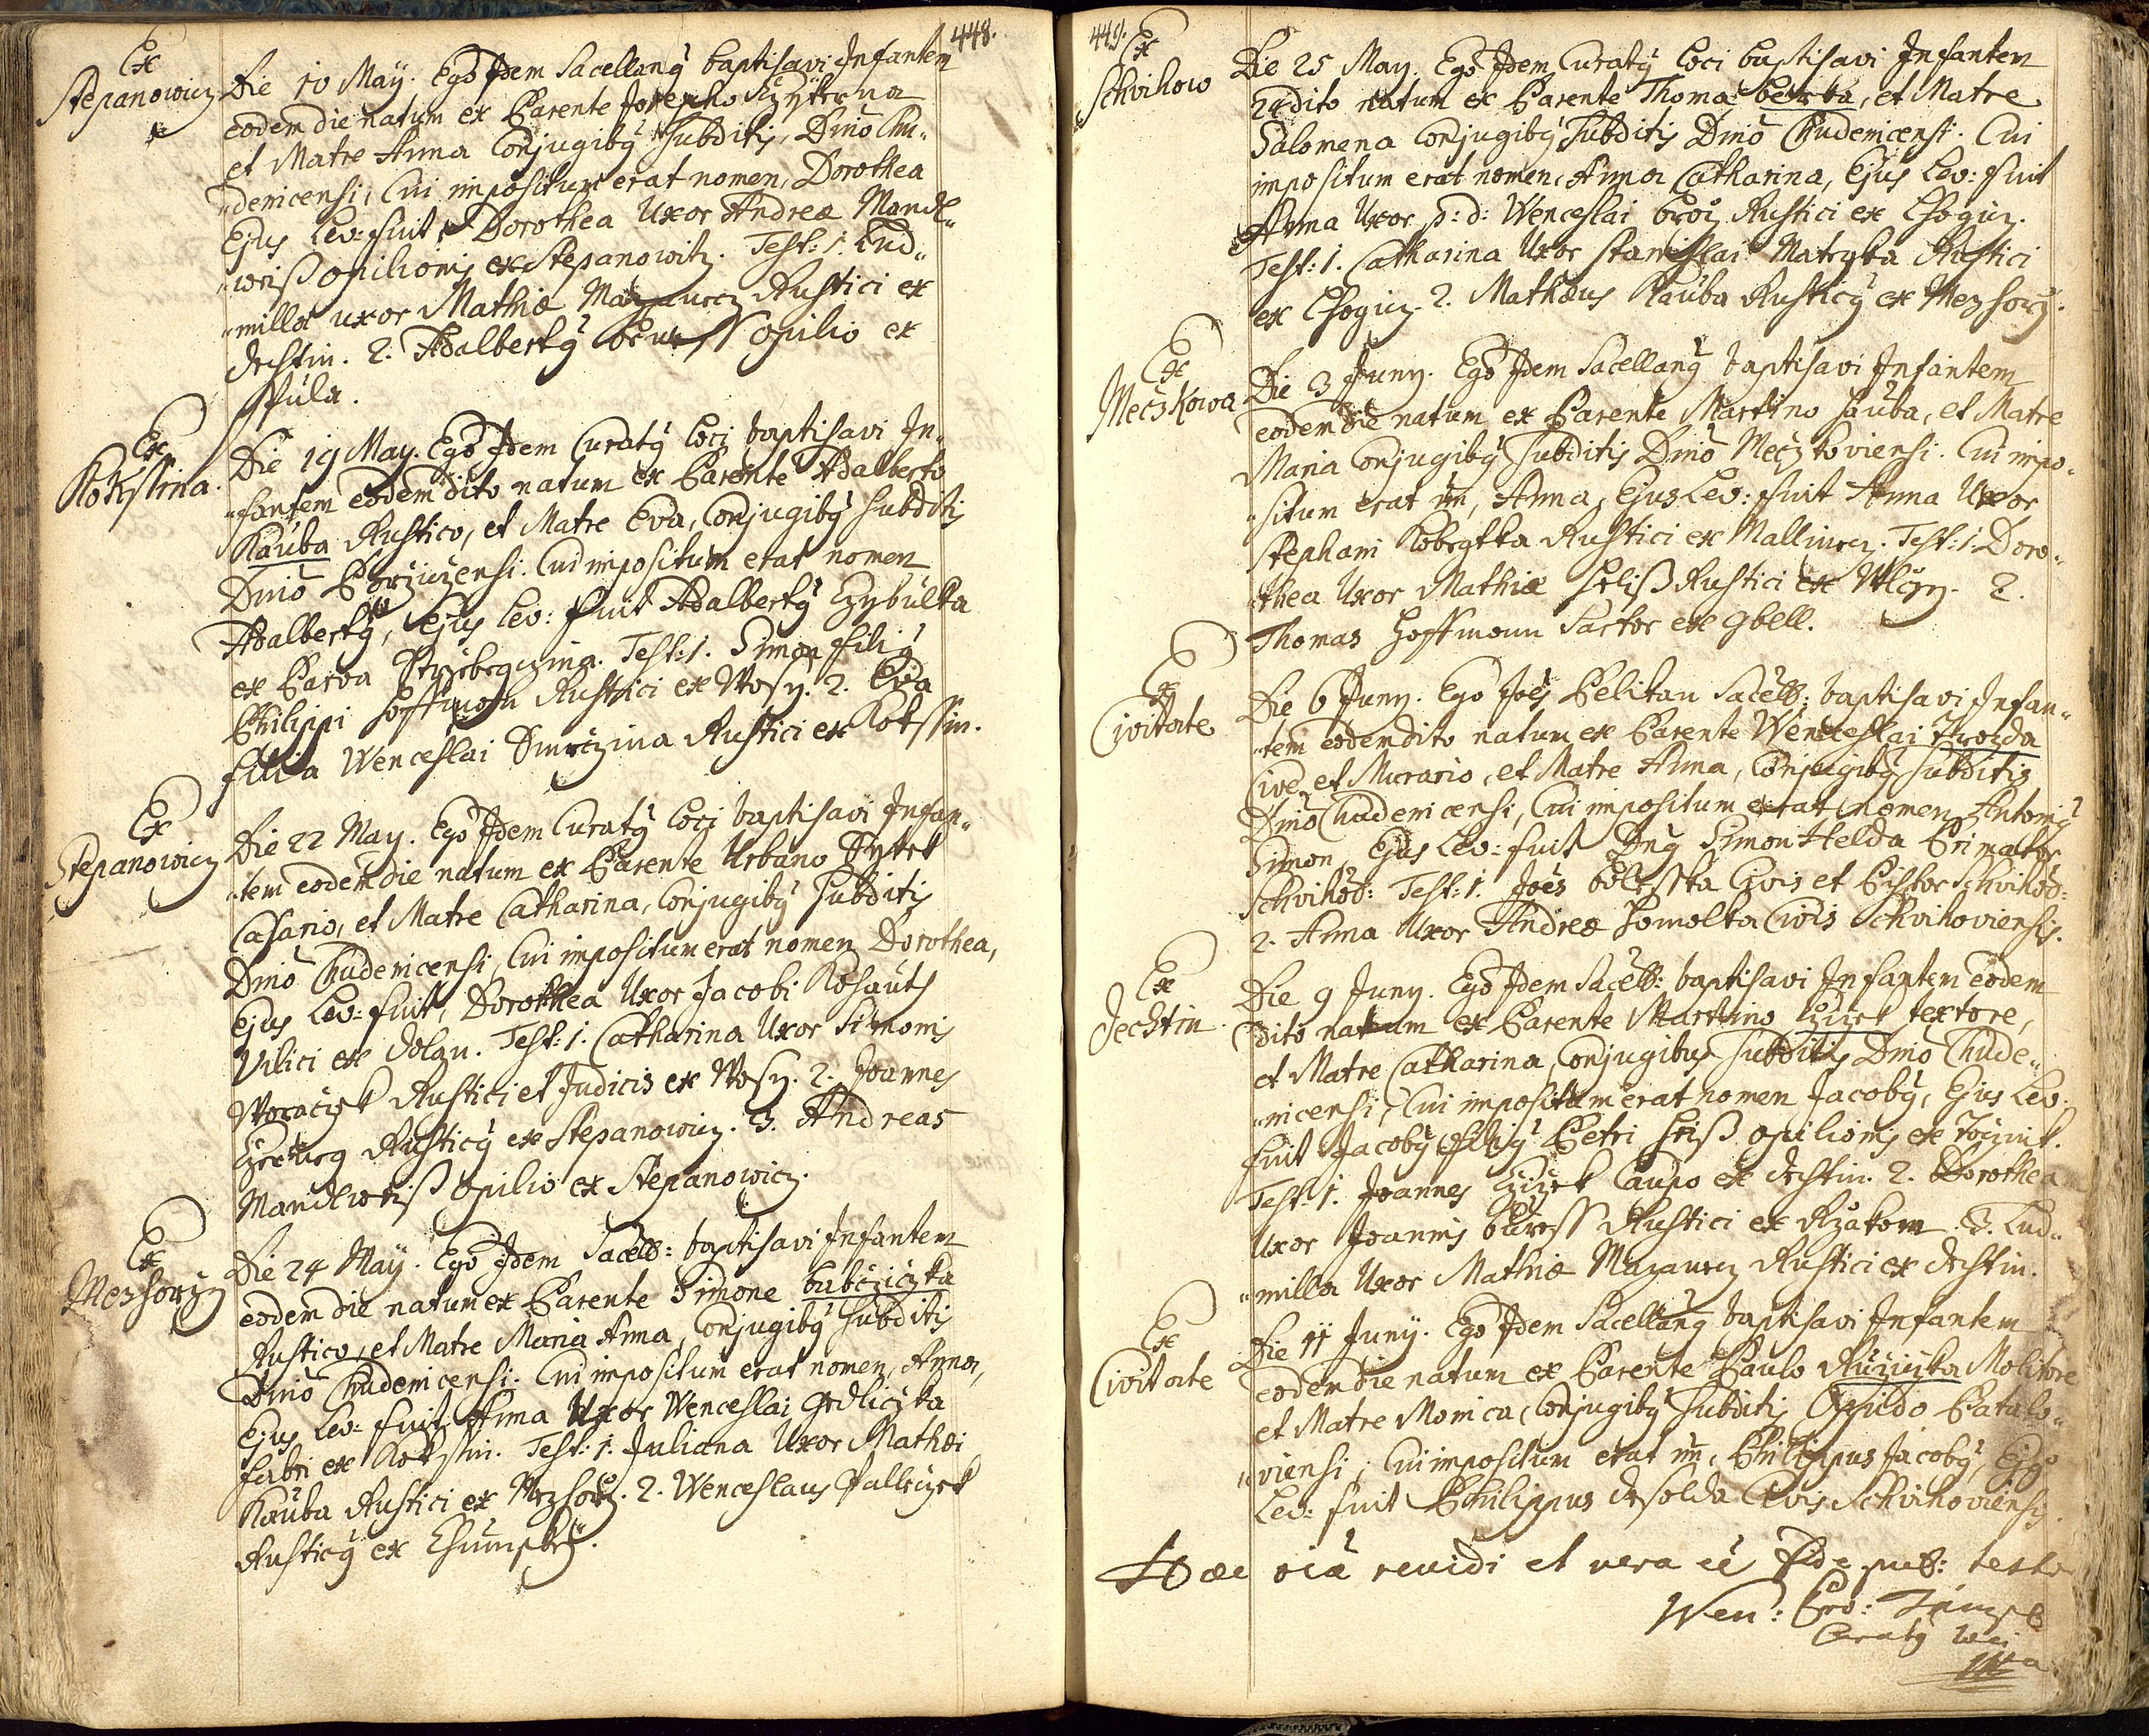 448.
Ex
Stepanowicz
Die 10 Maÿ. Ego Idem Sacellanq baptisavi Infantem
eodem die natum ex Parente Josepho
et Matre Anna Conjugibq Subditis, Dmo Chu„
„denicensi, Cui impositum erat nomen, Dorothea
Ejus Lev: fuit, Dorothea Uxor Andreæ Mandl„
„weiß opilionis ex Stepanowitz. Test: 1. Lud„
„milla uxor Mathiæ Mazaurcz Rustici ex
dechtin. 2. Adalbertq opilio ex
Ex
Kokssina.
Die 19 Maÿ. Ego Idem Curatq Loci baptisavi In„
„fantem eodem dito natum ex Parente Adalberto
Kauba Rustico, et Matre Eva, Conjugibq Subditis
Dmo Porziczensi. Cui impositum erat nomen
Adalbertq, Ejus Lev: fuit Adalbertq Czybulka
ex Parva. Test: 1. Simon filiq
Philippi Hoffmann Rustici ex Wosy. 2. Eva
filia Wenceslai Smrczina Rustici ex Kokssin.
Ex
Stepanowicz
Die 22 Maÿ. Ego Idem Curatq Loci baptisavi Infan„
„tem eodem die natum ex Parente Urbano Sykrt
Casario, et Matre Catharina, Conjugibq Subditis
Dmo Chudenicensi, Cui impositum erat nomen Dorothea,
Ejus Lev: fuit, Dorothea Uxor Jacobi Kohaut
Vilici ex dolan. Test: 1. Catharina Uxor Simonis
Woraczek Rustici et Judicis ex Wosy. 2. Joannes
Rusticq ex Stepanowicz. 3. Andreas
Mandlweiß opilio ex Stepanowicz.
Ex
Mezhorzy
Die 24 Maÿ. Ego Idem Sacell: baptisavi Infantem
eodem die natum ex Parente Simone bubcziczka
Rustico, et Matre Maria Anna, Conjugibq Subditis
Dmo Chudenicensi. Cui impositum erat nomen, Anna,
Ejus Lev: fuit Anna Uxor Wenceslai Hrdliczka
fabri ex Kokssin. Test: 1. Juliana Uxor Mathæi
Kauba Rustici ex Mezhorz. 2. Wenceslaus Palleczek
Rusticq ex Chumsk.
449.
Ex
Schvihow
Die 25 Maÿ. Ego Idem Curatq Loci baptisavi Infantem
24 dito natum ex Parente Thoma berka, et Matre
Salomena Conjugibq Subditis Dmo Chudenicensi. Cui
impositum erat nomen, Anna Catharina, Ejus Lev: fuit
Anna Uxor p: d: Wenceslai Rustici ex Lhowicz.
Test: 1. Catharina Uxor Stanislai Matyska Rustici
ex Lhowicz. 2. Mathæus Kauba Rusticq ex Mezhorz.
Ex
Meczkowa
Die 3 Juny. Ego Idem Sacellanq baptisavi Infantem
eodem die natum ex Parente Martino Hauba, et Matre
Maria Conjugibq Subditis Dmo Meczkoviensi. Cui impo„
„situm erat nn, Anna, Ejus Lev: fuit Anna Uxor
Stephani Rustici ex Mallinecz. Test: 1. Doro„
„thea Uxor Mathiæ Rustici ex Wlczy. 2.
Thomas Hoffmann Sartor ex gbell.
Ex
Civitate
Die 6 Juny. Ego Joes Pelikan Sacell: baptisavi Infan„
„tem eodem dito natum ex Parente Wenceslai
Cive et Murario, et Matre Anna, Conjugibq Subditis
Dmo Chudenicensi, Cui impositum erat nomen Antoniq
Simon, Ejus Lev: fuit Dnq Simon Helda Primator
Schvihov: Test: 1. Joes bolesska Civis et Pistor Schvihov:
2. Anna Uxor Andreæ Homolka Civis Schvihoviensis.
Ex
Dechtin.
Die 9 Juny. Ego Idem Sacell: baptisavi Infantem eodem
dito natum ex Parente Martino Czizek textore,
et Matre Catharina, Conjugibus Subditis Dmo Chude„
„nicensi, Cui impositum erat nomen Jacobq, Ejus Lev:
fuit Jacobq filiq Petri opilionis ex
Test: 1. Joannes Czizek Caupo ex dechtin. 2. Dorothea
Uxor Joannis buress Rustici ex Rzakom. 3. Lud„
„milla Uxor Mathiæ Mazaurcz Rustici ex dechtin.
Ex
Civitate
Die 11 Junÿ. Ego Idem Sacellanq baptisavi Infantem
eodem die natum ex Parente Paulo Ruziczka Molitore
et Matre Monica, Conjugibq Subditis Oppido
„viensi, Cui impositum erat nn, Philippus Jacobq, Ejq
Lev: fuit Philippus desolda Civis Schvihoviensis.
Hæc oia revidi et vera ee fide pub: testor
Wen:
Curatq